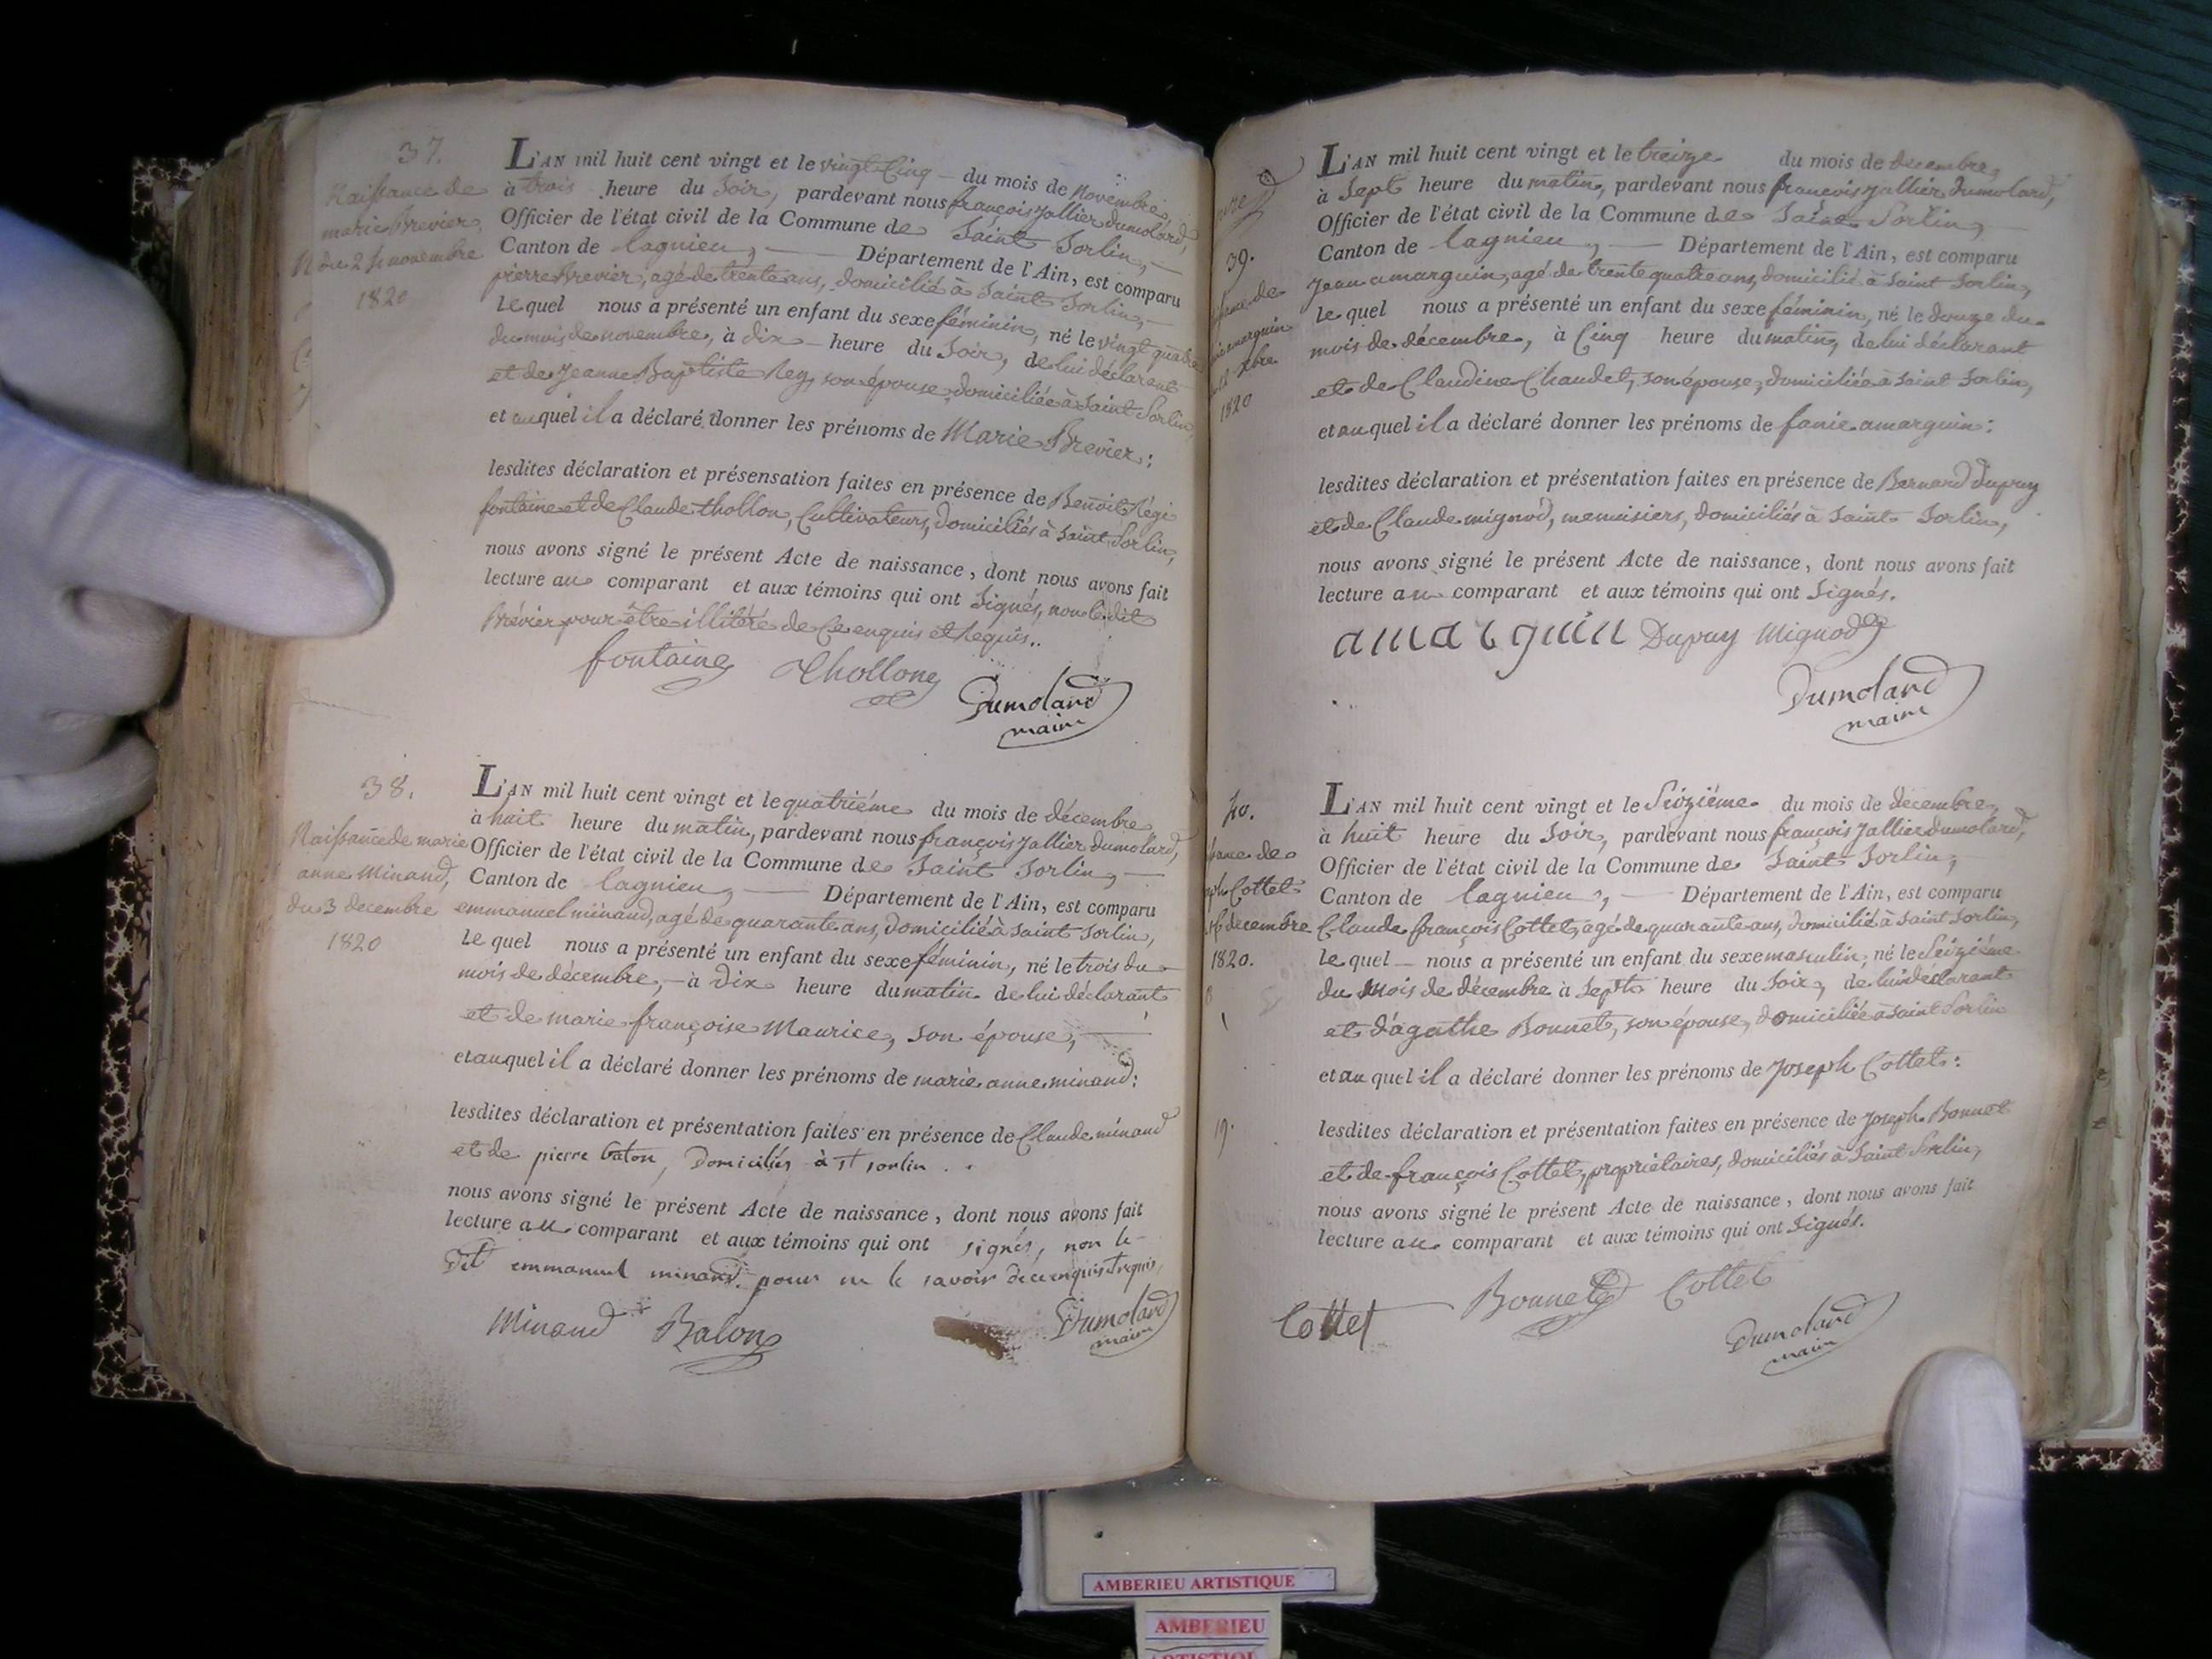 37.
Naissance de
marie Brevier,
du 24 novembre
1820
L'AN mil huit cent vingt et le vingt Cinq - du mois de Novembre,
à trois heure du Soir, pardevant nous françois jallier dumolard,
Officier de l'état civil de la Commune de Saint Sorlin,
Canton de lagnieu, Département de l'Ain, est comparu
pierre Brevier, agé de trente ans, domicilié à Saint Sorlin,
Le quel nous a présenté un enfant du sexe féminin, né le vingt quatre
du mois de novembre, à dix heure du Soir, de lui déclarant
et de Jeanne Baptiste Rey, son épouse, domiciliée à Saint Sorlin,
et auquel il a déclaré donner les prénoms de Marie Brevier:
lesdites déclaration et présensation faites en présence de Benoit Régi
fontaine et de Claude thollon, Cultivateurs, domiciliés à Saint Sorlin,
nous avons signé le présent Acte de naissance, dont nous avons fait
lecture au comparant et aux témoins qui ont Signés, non le dit
Brévier pour être illitéré de Ce enquis et Requis..
fontaine Thollon
Dumolard
maire
38.
Naissance de marie
anne Minand,
du 3 decembre
1820
L'AN mil huit cent vingt et le quatriéme du mois de décembre
à huit heure du matin, pardevant nous françois jallier dumolard,
Officier de l'état civil de la Commune de Saint Sorlin,
Canton de lagnieu, Département de l'Ain, est comparu
emmanuel minand, agé de quarante ans, domicilié à Saint Sorlin,
Le quel nous a présenté un enfant du sexe féminin, né le trois du
mois de décembre, - à dix heure du matin de lui déclarant
et de marie françoise Maurice, son épouse,
et auquel il a déclaré donner les prénoms de marie anne minand:
lesdites déclaration et présentation faites en présence de Claude minand
et de pierre baton, Domiciliés à St sorlin . .
nous avons signé le présent Acte de naissance, dont nous avons fait
lecture au comparant et aux témoins qui ont signés, non le
Dit emmanuel minand pour ne le savoir de ce enquis et requis,
Minand Balon
Dumolard
maire
39.
marguin
xbre
1820
L'AN mil huit cent vingt et le treize du mois de décembre,
à Sept heure du matin, pardevant nous françois jallier dumolard,
Officier de l'état civil de la Commune de Saint Sorlin,
Canton de lagnieu, Département de l'Ain, est comparu
Jean amarguin, agé de trente quatre ans, domicilié à Saint Sorlin,
Le quel nous a présenté un enfant du sexe féminin, né le douze du
mois de décembre, à Cinq heure du matin, de lui déclarant
et de Claudine Chaudet, son épouse, domiciliée à Saint Sorlin,
et au quel il a déclaré donner les prénoms de fanie amarguin:
lesdites déclaration et présentation faites en présence de Bernard Dupuy
et de Claude mignod, menuisiers, domiciliés à Saint Sorlin,
nous avons signé le présent Acte de naissance, dont nous avons fait
lecture au comparant et aux témoins qui ont Signés.
amarguin Dupuy Mignod
Dumolard
maire
40.
Cottet
decembre
1820.
L'AN mil huit cent vingt et le Seiziéme du mois de décembre,
à huit heure du Soir, pardevant nous françois jallier dumolard,
Officier de l'état civil de la Commune de Saint Sorlin,
Canton de lagnieu, Département de l'Ain, est comparu
Claude françois Cottet, agé de quarante ans, domicilié à Saint Sorlin,
Le quel nous a présenté un enfant du sexe masculin, né le Seiziéme
du mois de décembre à Sept heure du Soir, de lui déclarant
et d'agathe Bonnet, son épouse, domiciliée à Saint Sorlin
et au quel il a déclaré donner les prénoms de Joseph Cottet:
lesdites déclaration et présentation faites en présence de Joseph Bonnet
et de françois Cottet, propriétaires, domiciliés à Saint Sorlin,
nous avons signé le présent Acte de naissance, dont nous avons fait
lecture au comparant et aux témoins qui ont Signés.
Cottet Bonnet Cottet
Dumolard
maire
AMBERIEU ARTISTIQUE
AMBERIEU
ARTISTIQUE